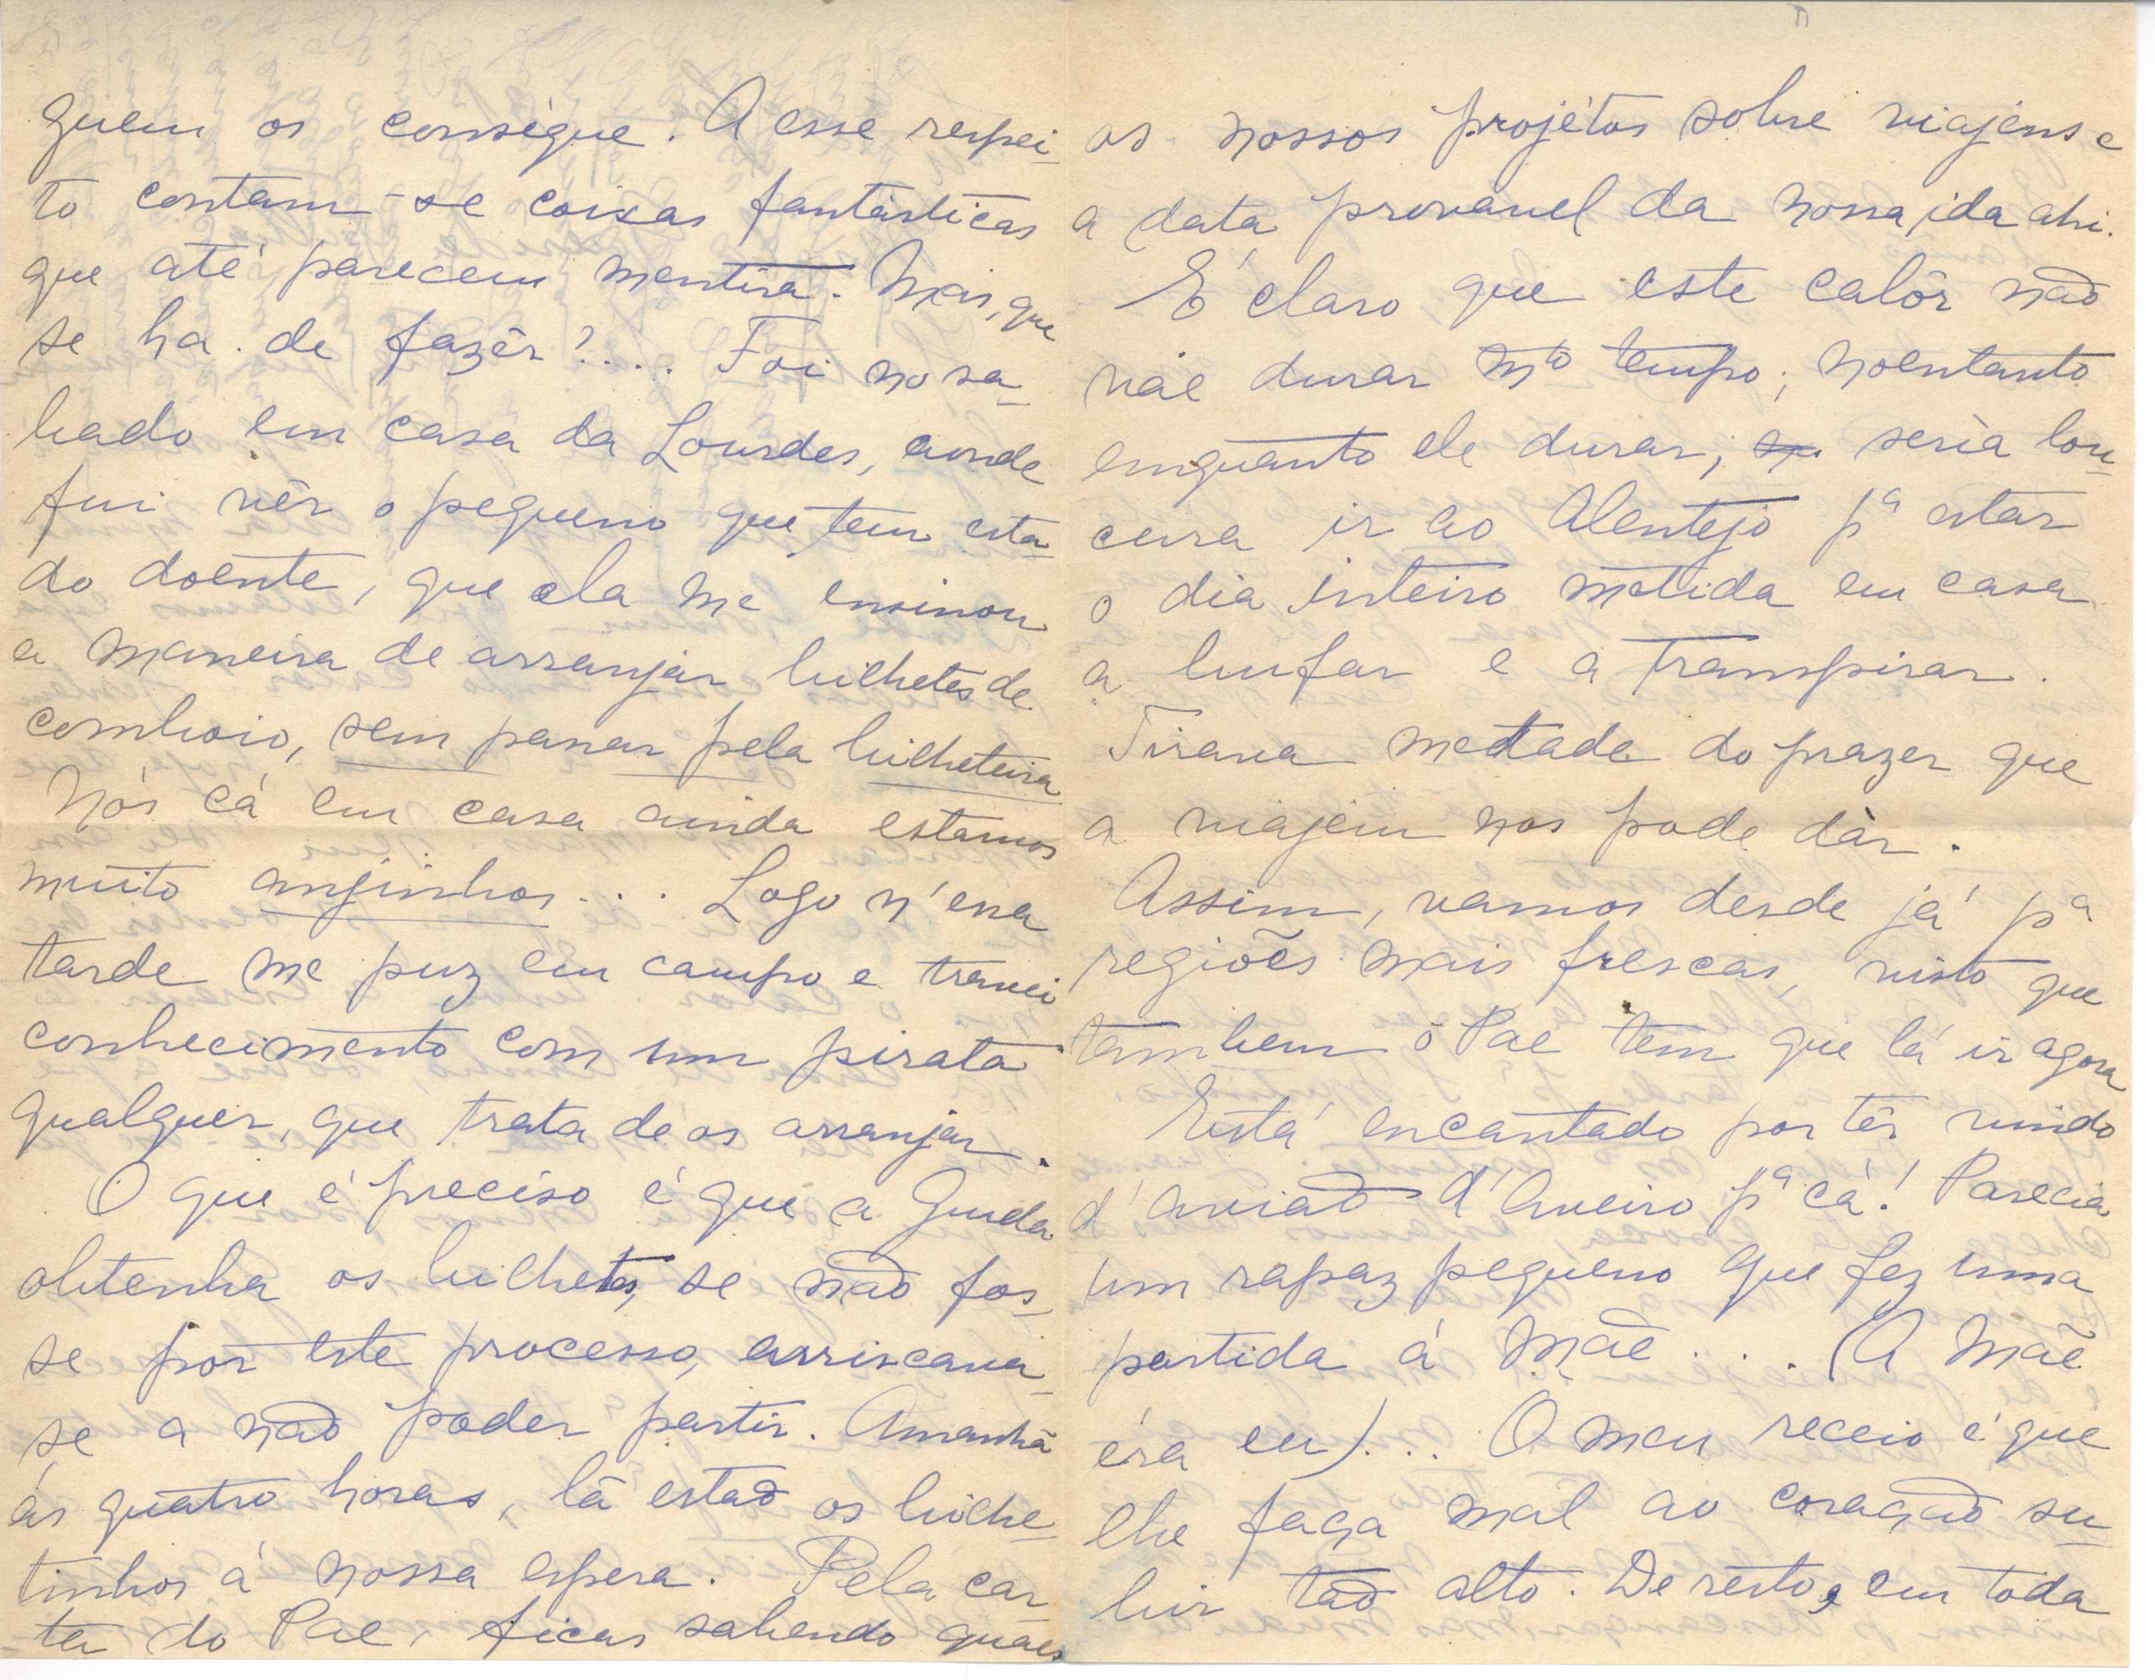 quem os conségue. A esse respei-
to contam-se coisas fantásticas
que até parecem mentira. Mas, que
se ha de fazêr?.... Foi no sa-
bado em casa da Lourdes, aonde
fui vêr o pequeno que tem esta-
do doente, que ela me ensinou
a maneira de arranjar bilhetes de
comboio, sem passar pela bilheteira
Nós cá em casa ainda estamos
muito anjinhos... Logo n'essa
tarde me puz em campo e travei
conhecimento com um pirata
qualquer, que trata de os arranjar.
O que é preciso é que a Guida
obtenha os bilhetes, se não fos-
se por este processo, arriscava-
se a não poder partir. Amanhã
ás quatro horas, lá estão os bilhe-
tinhos á nossa espera. Pela car-
ta do Pae, ficas sabendo quaes
os nossos projétos sobre viajens e
a data provavel da nossa ida ahi.
É claro que este calôr não
váe durar mto tempo; noentanto
enquanto ele durar, seria lou-
cura ir ao Alentejo pa estar
o dia inteiro metida em casa
a bufar e a transpirar.
Tirava metade do prazer que
a viajem nos pode dár.
Assim, vamos desde já pa
regiões mais frescas, visto que
tambem o Pae tem que lá ir agora
Está encantado por têr vindo
d'avião d'Aveiro pa cá! Parecia
um rapaz pequeno que fez uma
partida á Mãe... (A Mãe
éra eu)... O meu receio é que
lhe faça mal ao coração su-
bir tão alto. De resto, em toda